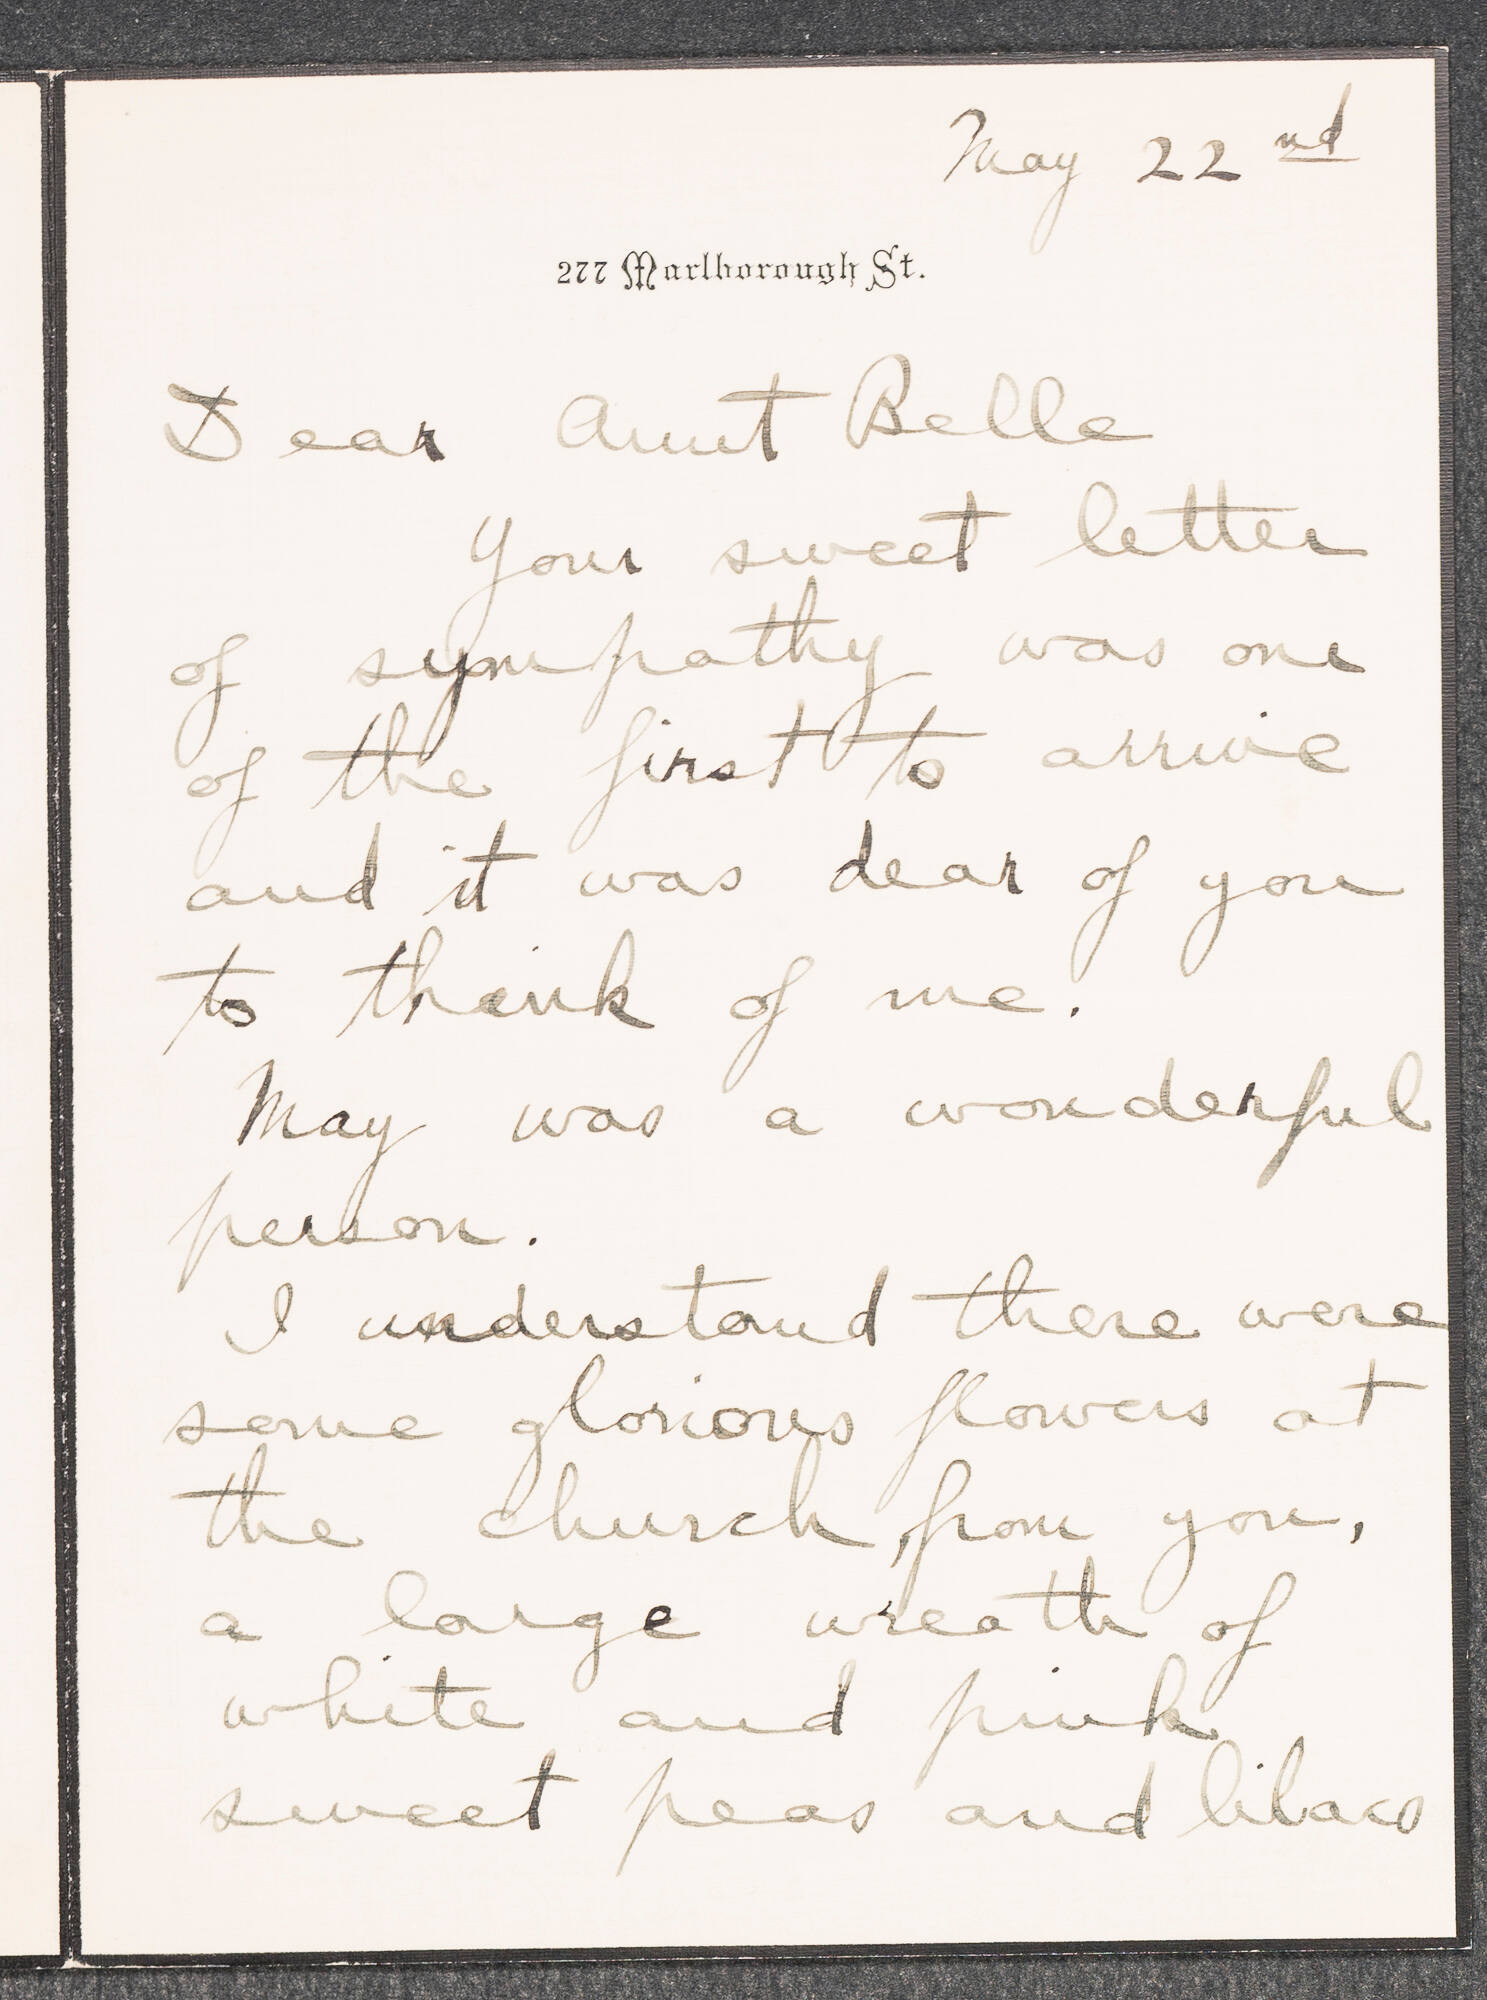 May 22nd
277 Marlborough St.
Dear Aunt Belle
Your sweet letter
of sympathy was one
of the first to arrive
and it was dear of you
to think of me.
May was a wonderful
person.
I understand there were
some glorious flowers at
the church, from you,
a large wreath of
white and pink
sweet peas and lilacs